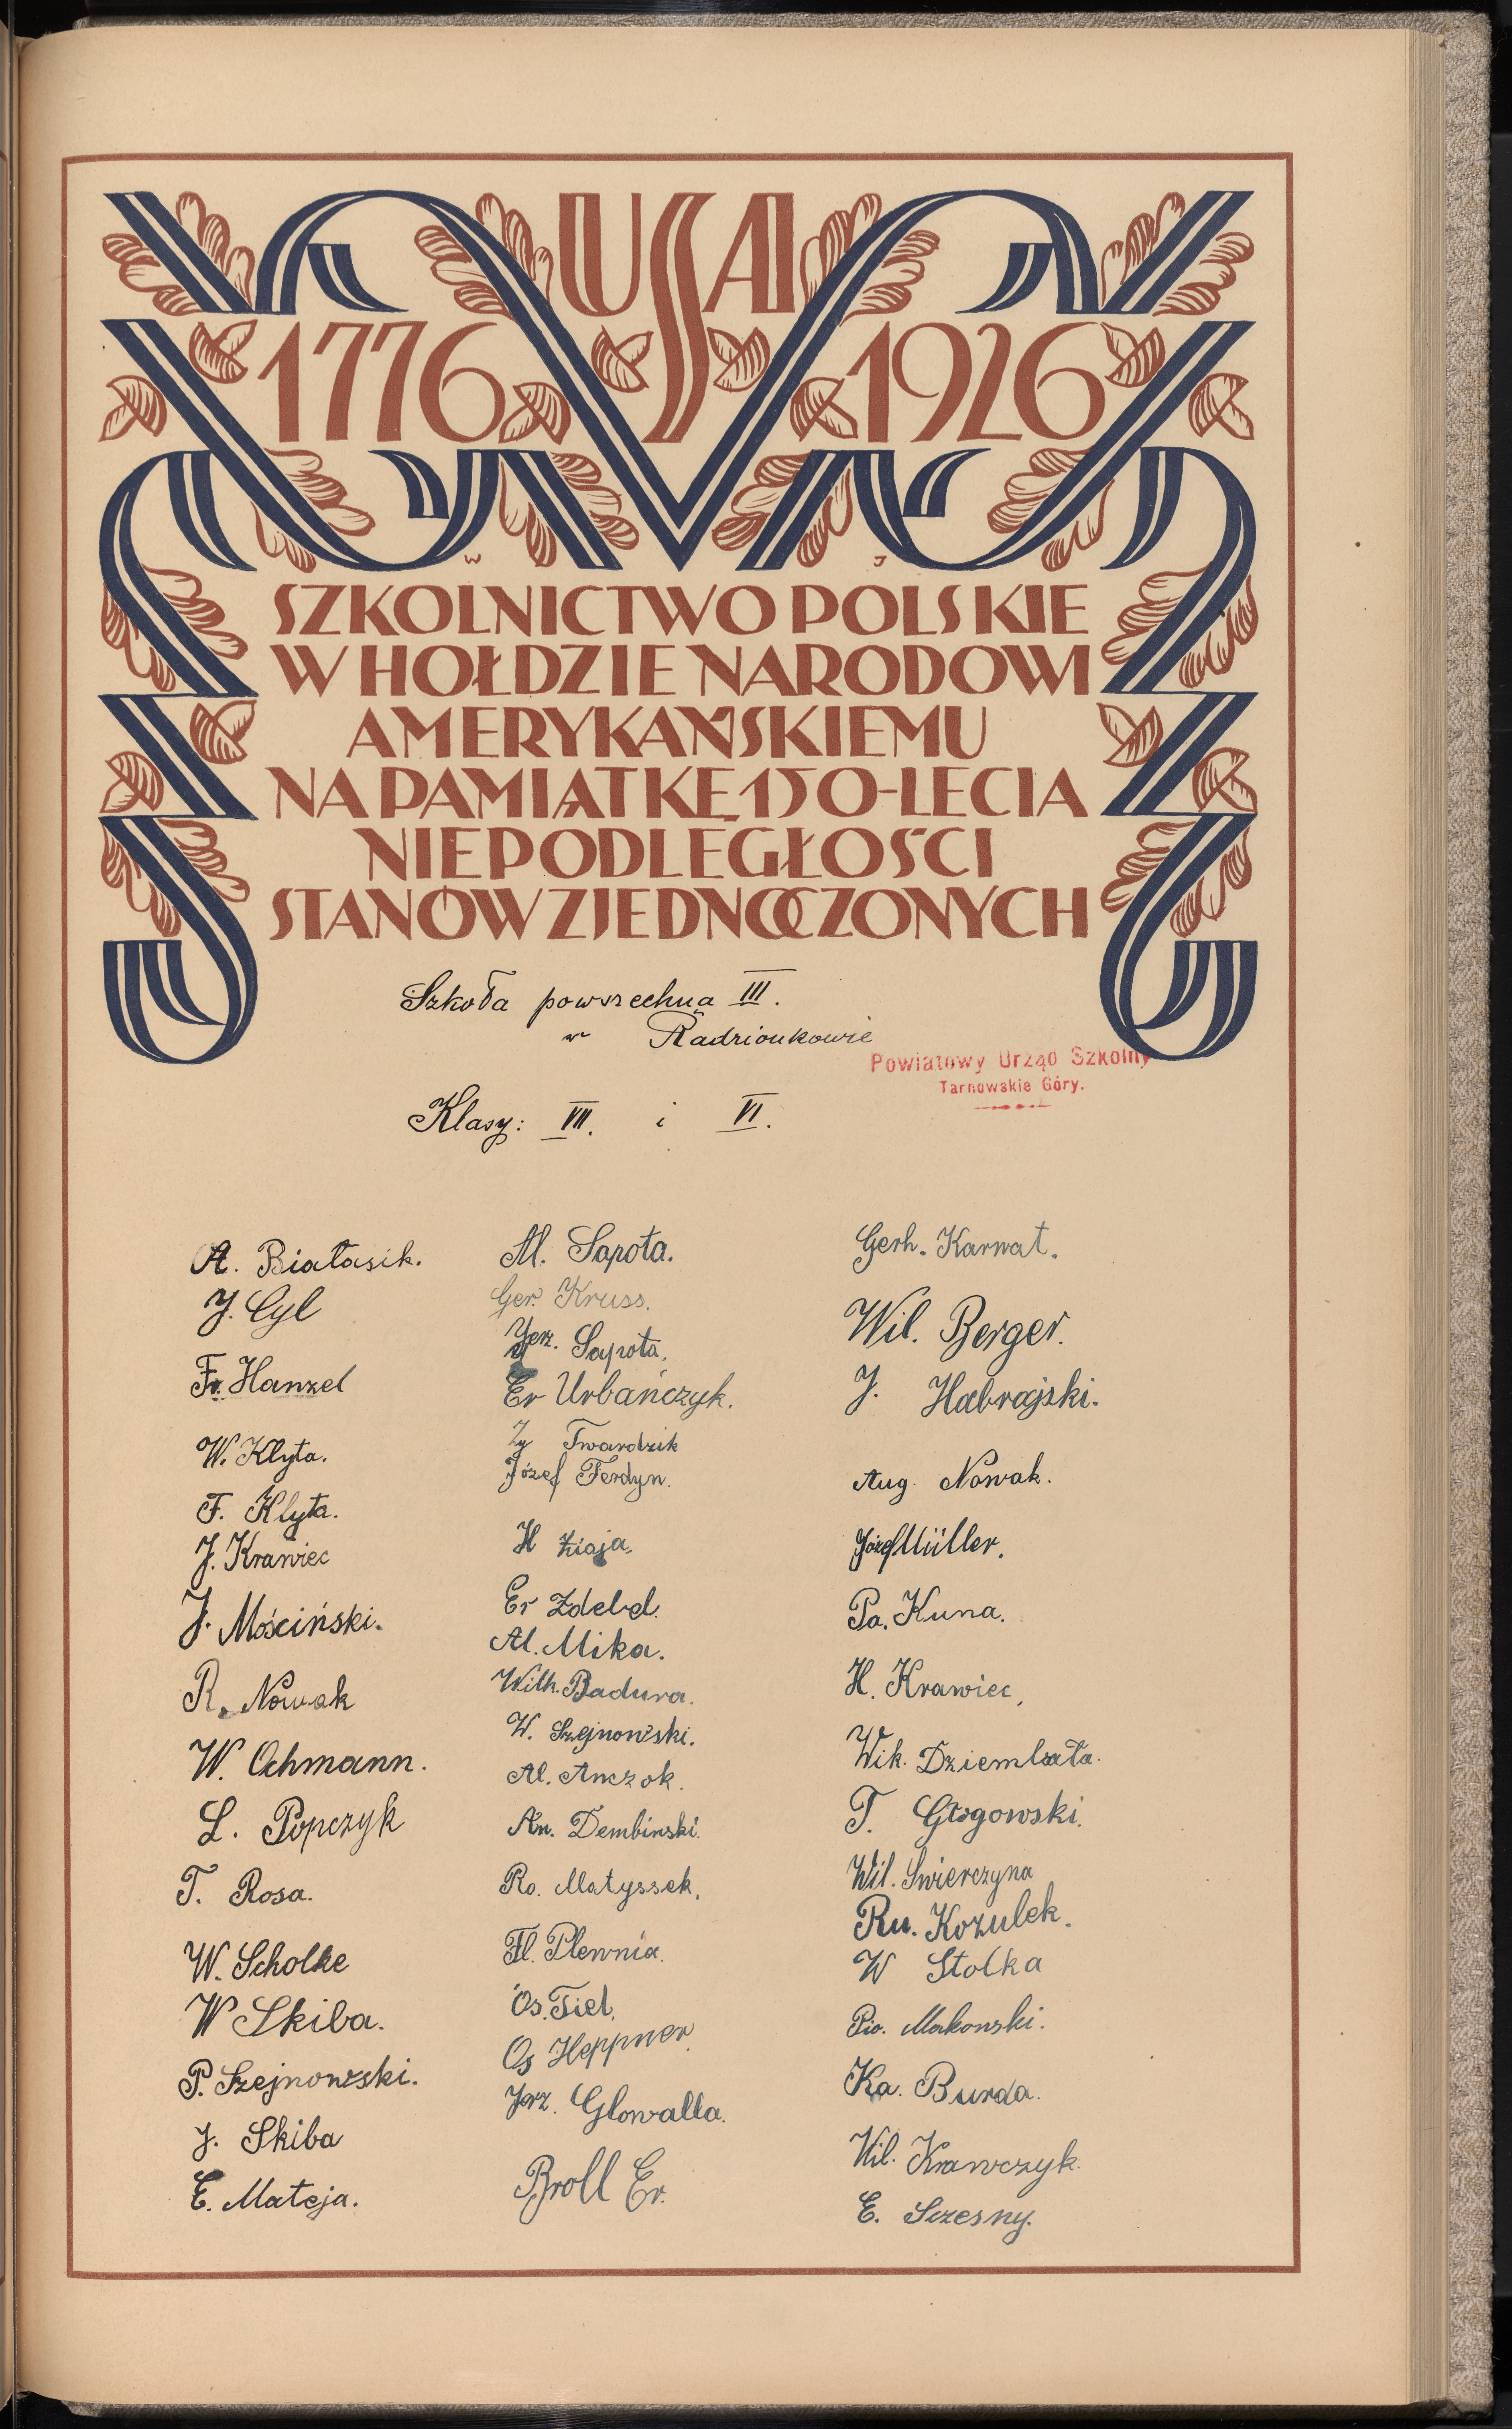 USA
1776 1926
W J
SZKOLNICTWO POLSKIE
W HOŁDZIE NARODOWI
AMERYKAŃSKIEMU
NA PAMIĄTKĘ 150-LECIA
NIEPODLEGŁOŚCI
STANÓW ZJEDNOCZONYCH
Szkoła powszechna III.
w Radzionkowie
Powiatowy Urząd Szkolny
Tarnowskie Góry.
Klasy: VII. i VI.
A. Białasik.
J. Cyl
Fr. Hanzel
W. Klyta.
F. Klyta.
J. Krawiec
J. Mościński.
R. Nowak
W. Ochmann.
L. Popczyk
T. Rosa.
W. Scholke
W Skiba.
P. Szejnowski.
J. Skiba
E. Mateja.
Al. Sapota.
Ger. Kruss.
Jerz. Sapota.
Er Urbańczyk.
Zy Twardzik
Józef Ferdyn.
H Ziaja.
Er Zdebel.
Al. Mika.
Wilh. Badura.
W. Szejnowski.
Al. Anczok.
An. Dembinski.
Ro. Matyssek.
Fl. Plewnia.
Os. Tiel.
Os Heppner.
Jerz. Glowalla.
Broll Er.
Gerh. Karwat.
Wil. Berger.
J. Habrajski.
Aug. Nowak.
Józef Müller.
Pa. Kuna.
H. Krawiec,
Wik. Dziembała.
T. Głogowski.
Wil. Swierczyna
Ru. Kozulek.
W Stolka
Pio. Makowski.
Ka. Burda.
Wil. Krawczyk.
E. Sczesny.